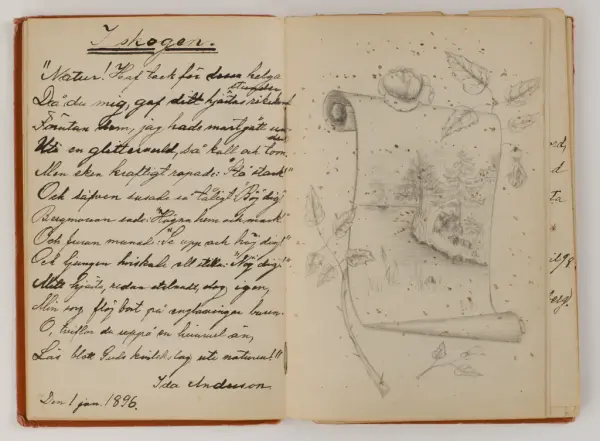 I skogen.
"Natur! Haf tack för dessa helga
stunder
Då du mig, gaf ditt hjärtas rikedom
Förutan dem, jag hade snart gått
Uti en glittervärld, så kall och tom.
Men eken kraftigt ropade: "Stå i stark!"
Och säfven susade så "tåligt: Böj dig"
Bergmossan sade: "Högra hem och mark"
Och furan manal: "Se upp och höj dig!"
Och ljungen hviskade all stilla: "Nöj dig!"
Mitt hjärta, redan slog igen,
Min sorg flög bort på englasvingar buren.
O, tviflar du uppå en himmel än,
Läs blott Guds kärlekslag ute naturen!"
Ida Anderson.
Den 1 jan. 1896.
d
ta
98